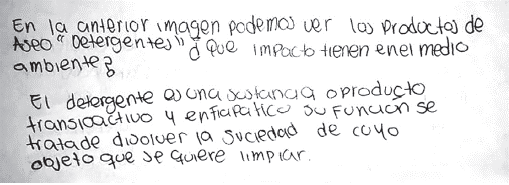 En la anterior imagen podemos ver los Productos de
Aseo "Detergentes" ¿ Que impacto tienen enel medio
ambiente?
El detergente es una sustancia o producto
transioactivo y enfiapatico su Función se
tratade disolver la suciedad de cuyo
objeto que se quiere limpiar.